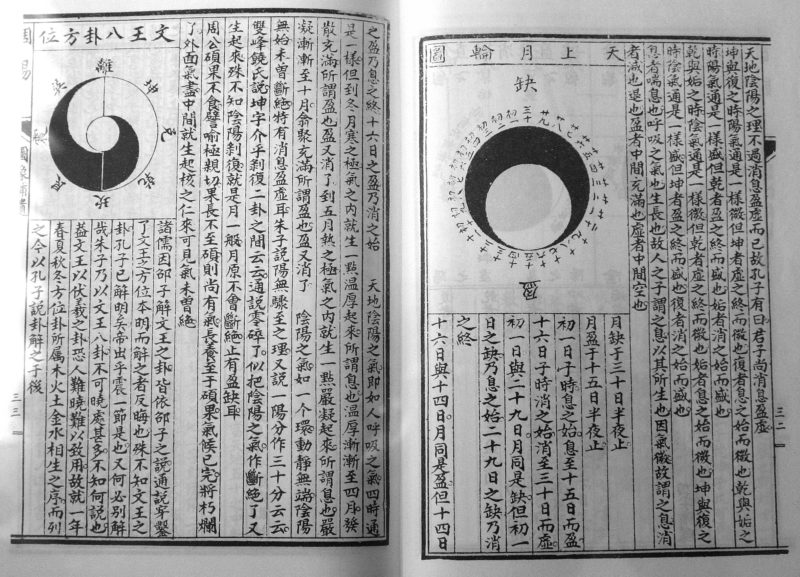 天地陰陽之理不過消息盈虛而已故孔子有曰君子尚消息盈虛
坤與復之時陽氣通是一樣微但坤者虛之終而微也復者息之始而微也乾與姤之
時陽氣通是一樣盛但乾者盈之終而盛也姤者消之始而盛也
乾與姤之時陰氣通是一樣微但乾者虛之終而微也姤者息之始而微也坤與復之
時陰氣通是一樣盛但坤者盈之終而盛也復者消之始而盛也
息者喘息也呼吸之氣也生長也故人之子謂之息以其所生也因氣微故謂之息消
者減也退也盈者中間充滿也虛者中間空也
三二
天上月輪圖
缺
盈
月缺于三十日半夜止
月盈于十五日半夜止
初一日子時息之始息至十五日而盈
十六日子時消之始消至三十日而虛
初一日與二十九日月同是缺但初一
日之缺乃息之始二十九日之缺乃消
之終
十六日與十四日月同是盈但十四日
之盈乃息之終十六日之盈乃消之始 天地陰陽之氣即如人呼吸之氣四時通
是一樣但到冬月寒之極氣之內就生一點溫厚起來所謂息也溫厚漸漸至四月發
散充滿所謂盈也盈又消了到五月熱之極氣之內就生一點嚴凝起來所謂息也嚴
凝漸漸至十月翕聚充滿所謂盈也盈又消了 陰陽之氣如一個環動靜無端陰陽
無始未曾斷絕特有消息盈虛耳朱子說陽無驟至之理又說一陽分作三十分云云
雙峰饒氏說坤字介乎剥復二卦之間云云通說零碎了似把陰陽之氣作斷絕了又
生起來殊不知陰陽剥復就是月一般月原不會斷絕止有盈缺耳
周公碩果不食譬喻極親切果長不至碩則尚有氣長養至于碩果氣候已完將朽爛
了外面氣盡中間就生起核之仁來可見氣未曾絕
文王八卦方位
離
坤
兌
乾
坎
艮
震
巽
諸儒因邵子解文王之卦皆依邵子之說通說穿鑿
了文王之方位本明而解之者反晦也殊不知文王之
卦孔子已解明矣帝出乎震一節是也又何必別解
哉朱子乃以文王八卦不可曉處甚多不知何說也
蓋文王以伏羲之卦恐人難曉難以致用故就一年
春夏秋冬方位卦所屬木火土金水相生之序而列
之今以孔子說卦解之于後
三三